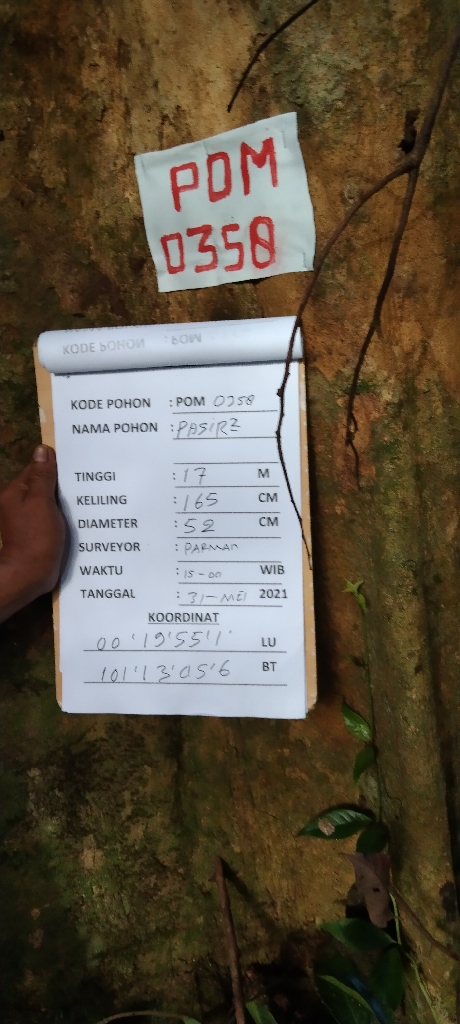 POM
0358
KODE POHON : POM
KODE POHON : POM 0358
NAMA POHON : PASIR2
TINGGI : 17 M
KELILING : 165 CM
DIAMETER : 52 CM
SURVEYOR : PARMAN
WAKTU : 15-00 WIB
TANGGAL : 31-MEI 2021
KOORDINAT
00'19'55'1' LU
101'13'05'6 BT